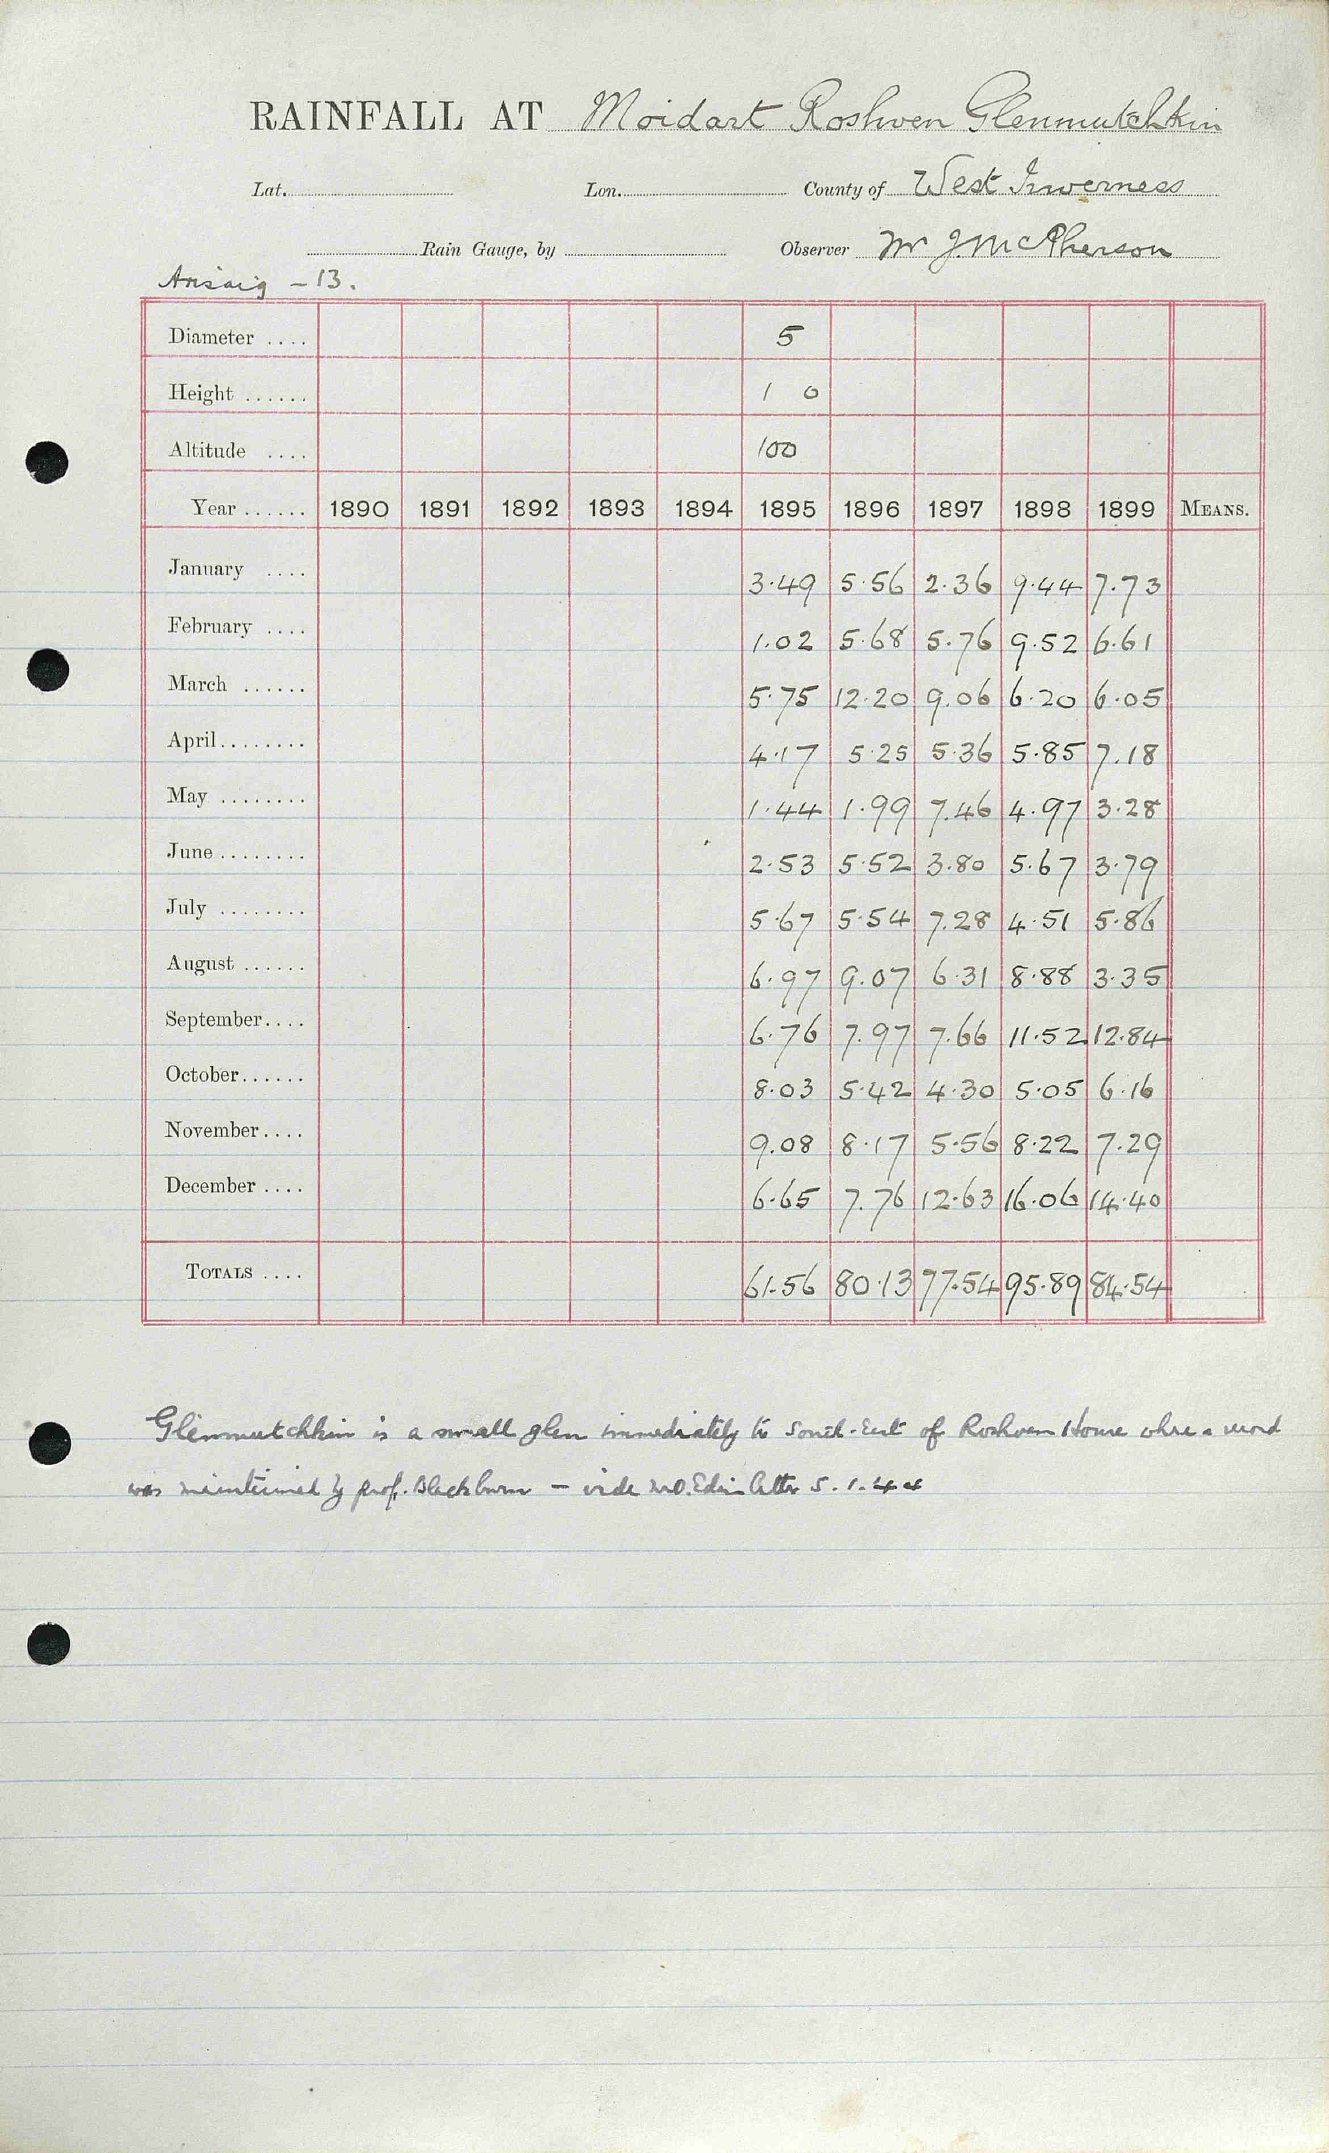 RAINFALL AT Moidart Roshven Glenmutchkin
Lat. Lon. County of West Inverness
Rain Gauge, by Observer Mr J. McPherson
Arisaig - 13.
Diameter .... 5
Height ...... 1 0
Altitude .... 100
Year ...... 1890 1891 1892 1893 1894 1895 1896 1897 1898 1899 MEANS.
January .... 3.49 5.56 2.36 9.44 7.73
February .... 1.02 5.68 5.76 9.52 6.61
March ...... 5.75 12.20 9.06 6.20 6.05
April ........ 4.17 5.25 5.36 5.85 7.18
May ........ 1.44 1.99 7.46 4.97 3.28
June ........ 2.53 5.52 3.80 5.67 3.79
July ........ 5.67 5.54 7.28 4.51 5.86
August ...... 6.97 9.07 6.31 8.88 3.35
September.... 6.76 7.97 7.66 11.52 12.84
October...... 8.03 5.42 4.30 5.05 6.16
November.... 9.08 8.17 5.56 8.22 7.29
December .... 6.65 7.76 12.63 16.06 14.40
TOTALS .... 61.56 80.13 77.54 95.89 84.54
Glenmutchkin is a small glen immediately to South-East of Roshven House where a record
was maintained by Prof. Blackburn - vide M.O. Edin letter 5.1.44